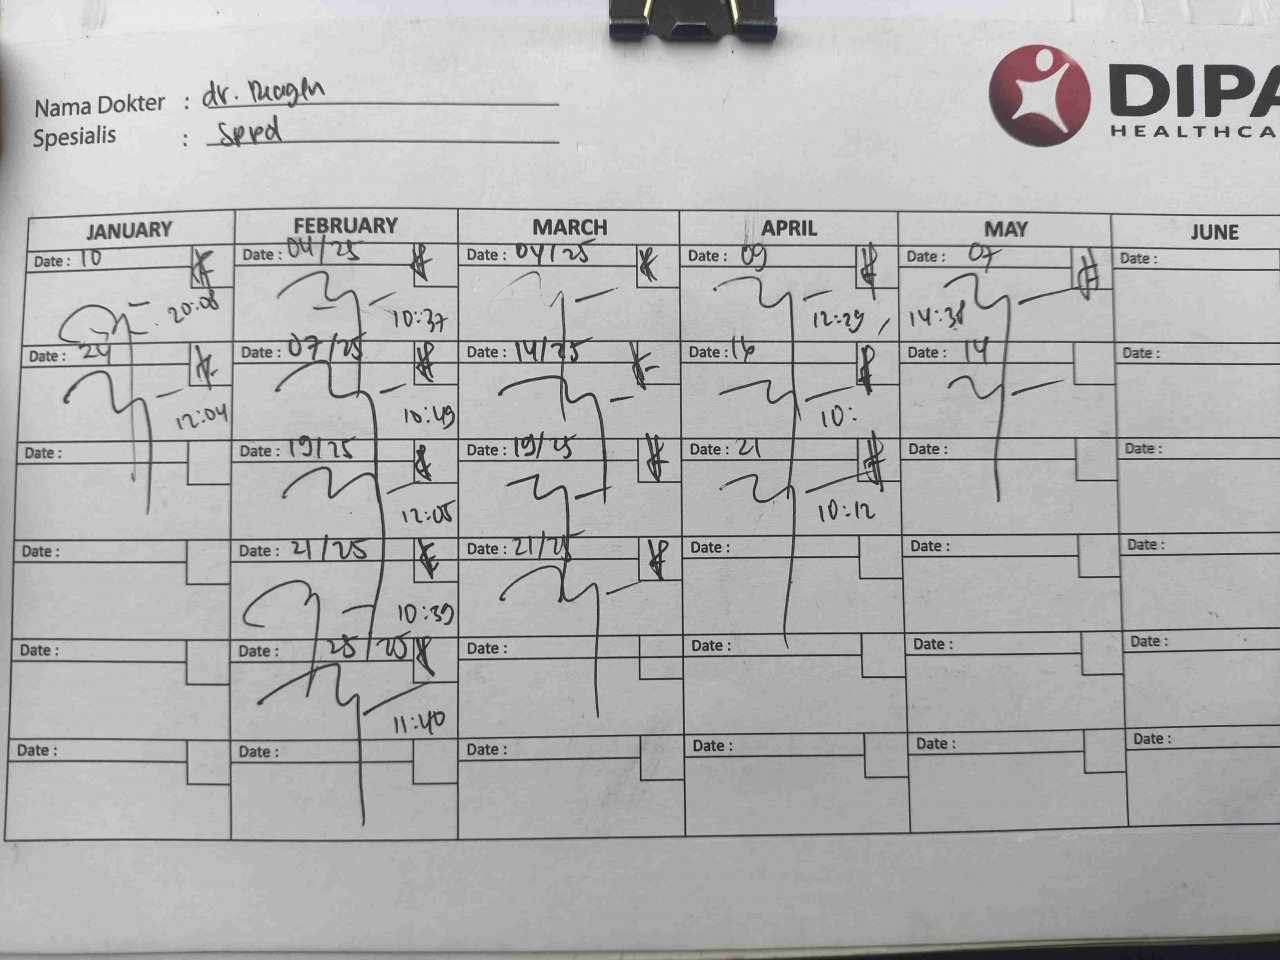 Nama Dokter : dr. Reagen
Spesialis : Sppd
DIPA
HEALTHCA
JANUARY FEBRUARY MARCH APRIL MAY JUNE
Date : 10 Date : 04/25 Date : 04/25 Date : 09 Date : 07 Date :
20:08 10:37 12:29 14:38
Date : 24 Date : 07/25 Date : 14/25 Date : 16 Date : 14 Date :
12:04 10:49 10:
Date : Date : 19/25 Date : 19/25 Date : 21 Date : Date :
12:05 10:12
Date : Date : 21/25 Date : 21/25 Date : Date : Date :
10:39
Date : Date : 25/25 Date : Date : Date : Date :
11:40
Date : Date : Date : Date : Date : Date :